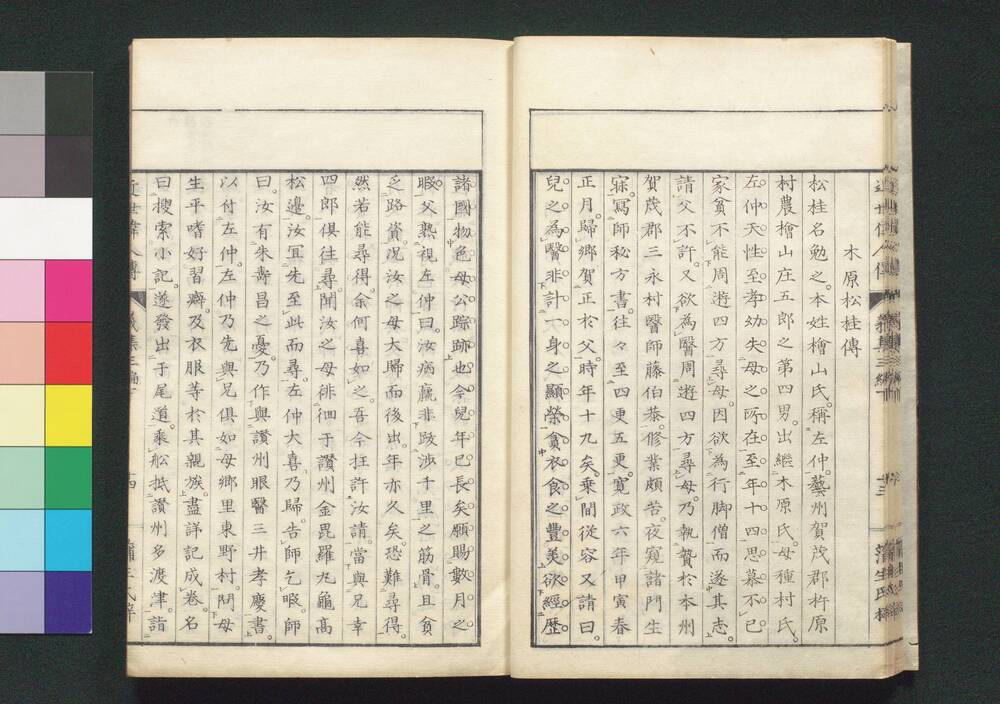 木原松桂傳
松桂名勉之。本姓檜山氏。稱左仲。藝州賀茂郡杵原
村農檜山庄五郎之第四男。出繼木原氏。母種村氏。
左仲天性至孝幼失母之所在至年十四思慕不已
家貧不能周遊四方尋母。因欲為行脚僧而遂其志。
請父不許。又欲為醫周遊四方尋母。乃執贄於本州
賀茂郡三永村醫師藤伯恭。修業頗苦。夜窺諸門生
寐。寫師秘方書。往々至四更五更。寛政六年甲寅春
正月。歸鄉賀正於父。時年十九矣。乗間從容又請曰。
兒之為醫非計一身之顯榮貪衣食之豐美欲經歷
諸國物色母公踪跡也今兒年已長矣願賜數月之
暇。父熟視左仲曰。汝病羸非跋渉千里之筋骨。且貧
乏路資。況汝之母大歸而後出。年亦久矣。恐難尋得。
然若能尋得。余何喜如之。吾今抂許汝請。當與兄幸
四郎俱往尋。聞汝之母徘徊于讚州金毘羅丸龜高
松邊。汝宜先至此而尋。左仲大喜。乃歸。告師乞暇。師
曰。汝有朱壽昌之憂。乃作與讚州眼醫三井孝慶書。
以付左仲。左仲乃先與兄俱如母鄉里東野村。問母
生平嗜好習癖。及衣服等於其親族。盡詳記成卷。名
曰搜索小記。遂發出于尾道。乘舩抵讚州多渡津。詣
近世偉人傳
義集三編下
廿三
蒲生氏梓
近世偉人傳
義集三編下
廿四
蒲生氏梓